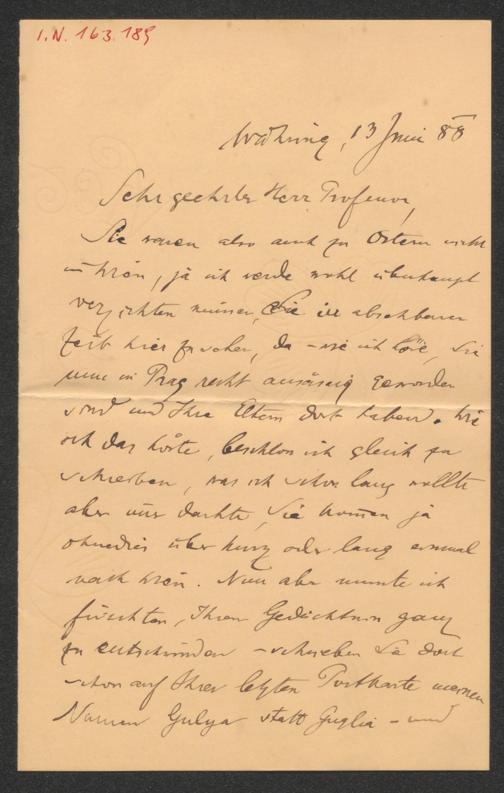 I.N. 163.189
Währing, 13 Juni 88
Sehr geehrter Herr Professor,
Sie waren also auch zu Ostern nicht
in Wien, ja ich werde wohl überhaupt
verzichten müssen, Sie in absehbarer
Zeit hier zu sehen, da – wie ich höre, Sie
nun in Prag recht ansässig geworden
sind und Ihre Eltern dort haben. Wie
ich das hörte, beschloss ich gleich zu
schreiben, was ich schon lang wollte
aber nur dachte, Sie kommen ja
ohnedies über kurz oder lang einmal
nach Wien. Nun aber musste ich
fürchten, Ihrem Gedächtniss ganz
zu entschwinden – schrieben Sie doch
schon auf Ihrer letzten Postkarte meinen
Namen Gulya statt Guglia – und